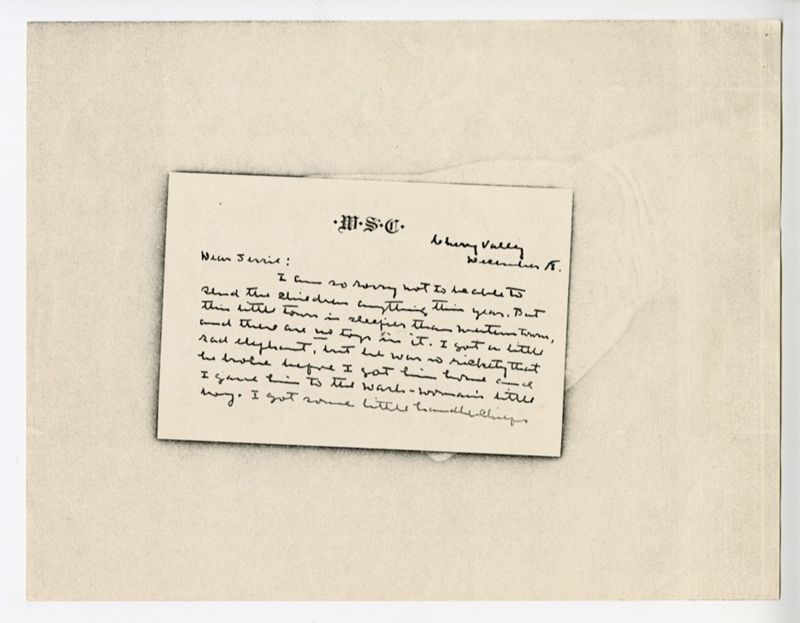 ·W·S·C·
Cherry Valley
December 18.
Dear Jessie:
I am so sorry not to be able to
send the children anything this year. But
this little town is sleepier than western towns,
and there are no toys in it. I got a little
sad elephant, but he was so rickety that
he broke before I got him home and
I gave him to the wash-woman's little
boy. I got some little handkerchiefs